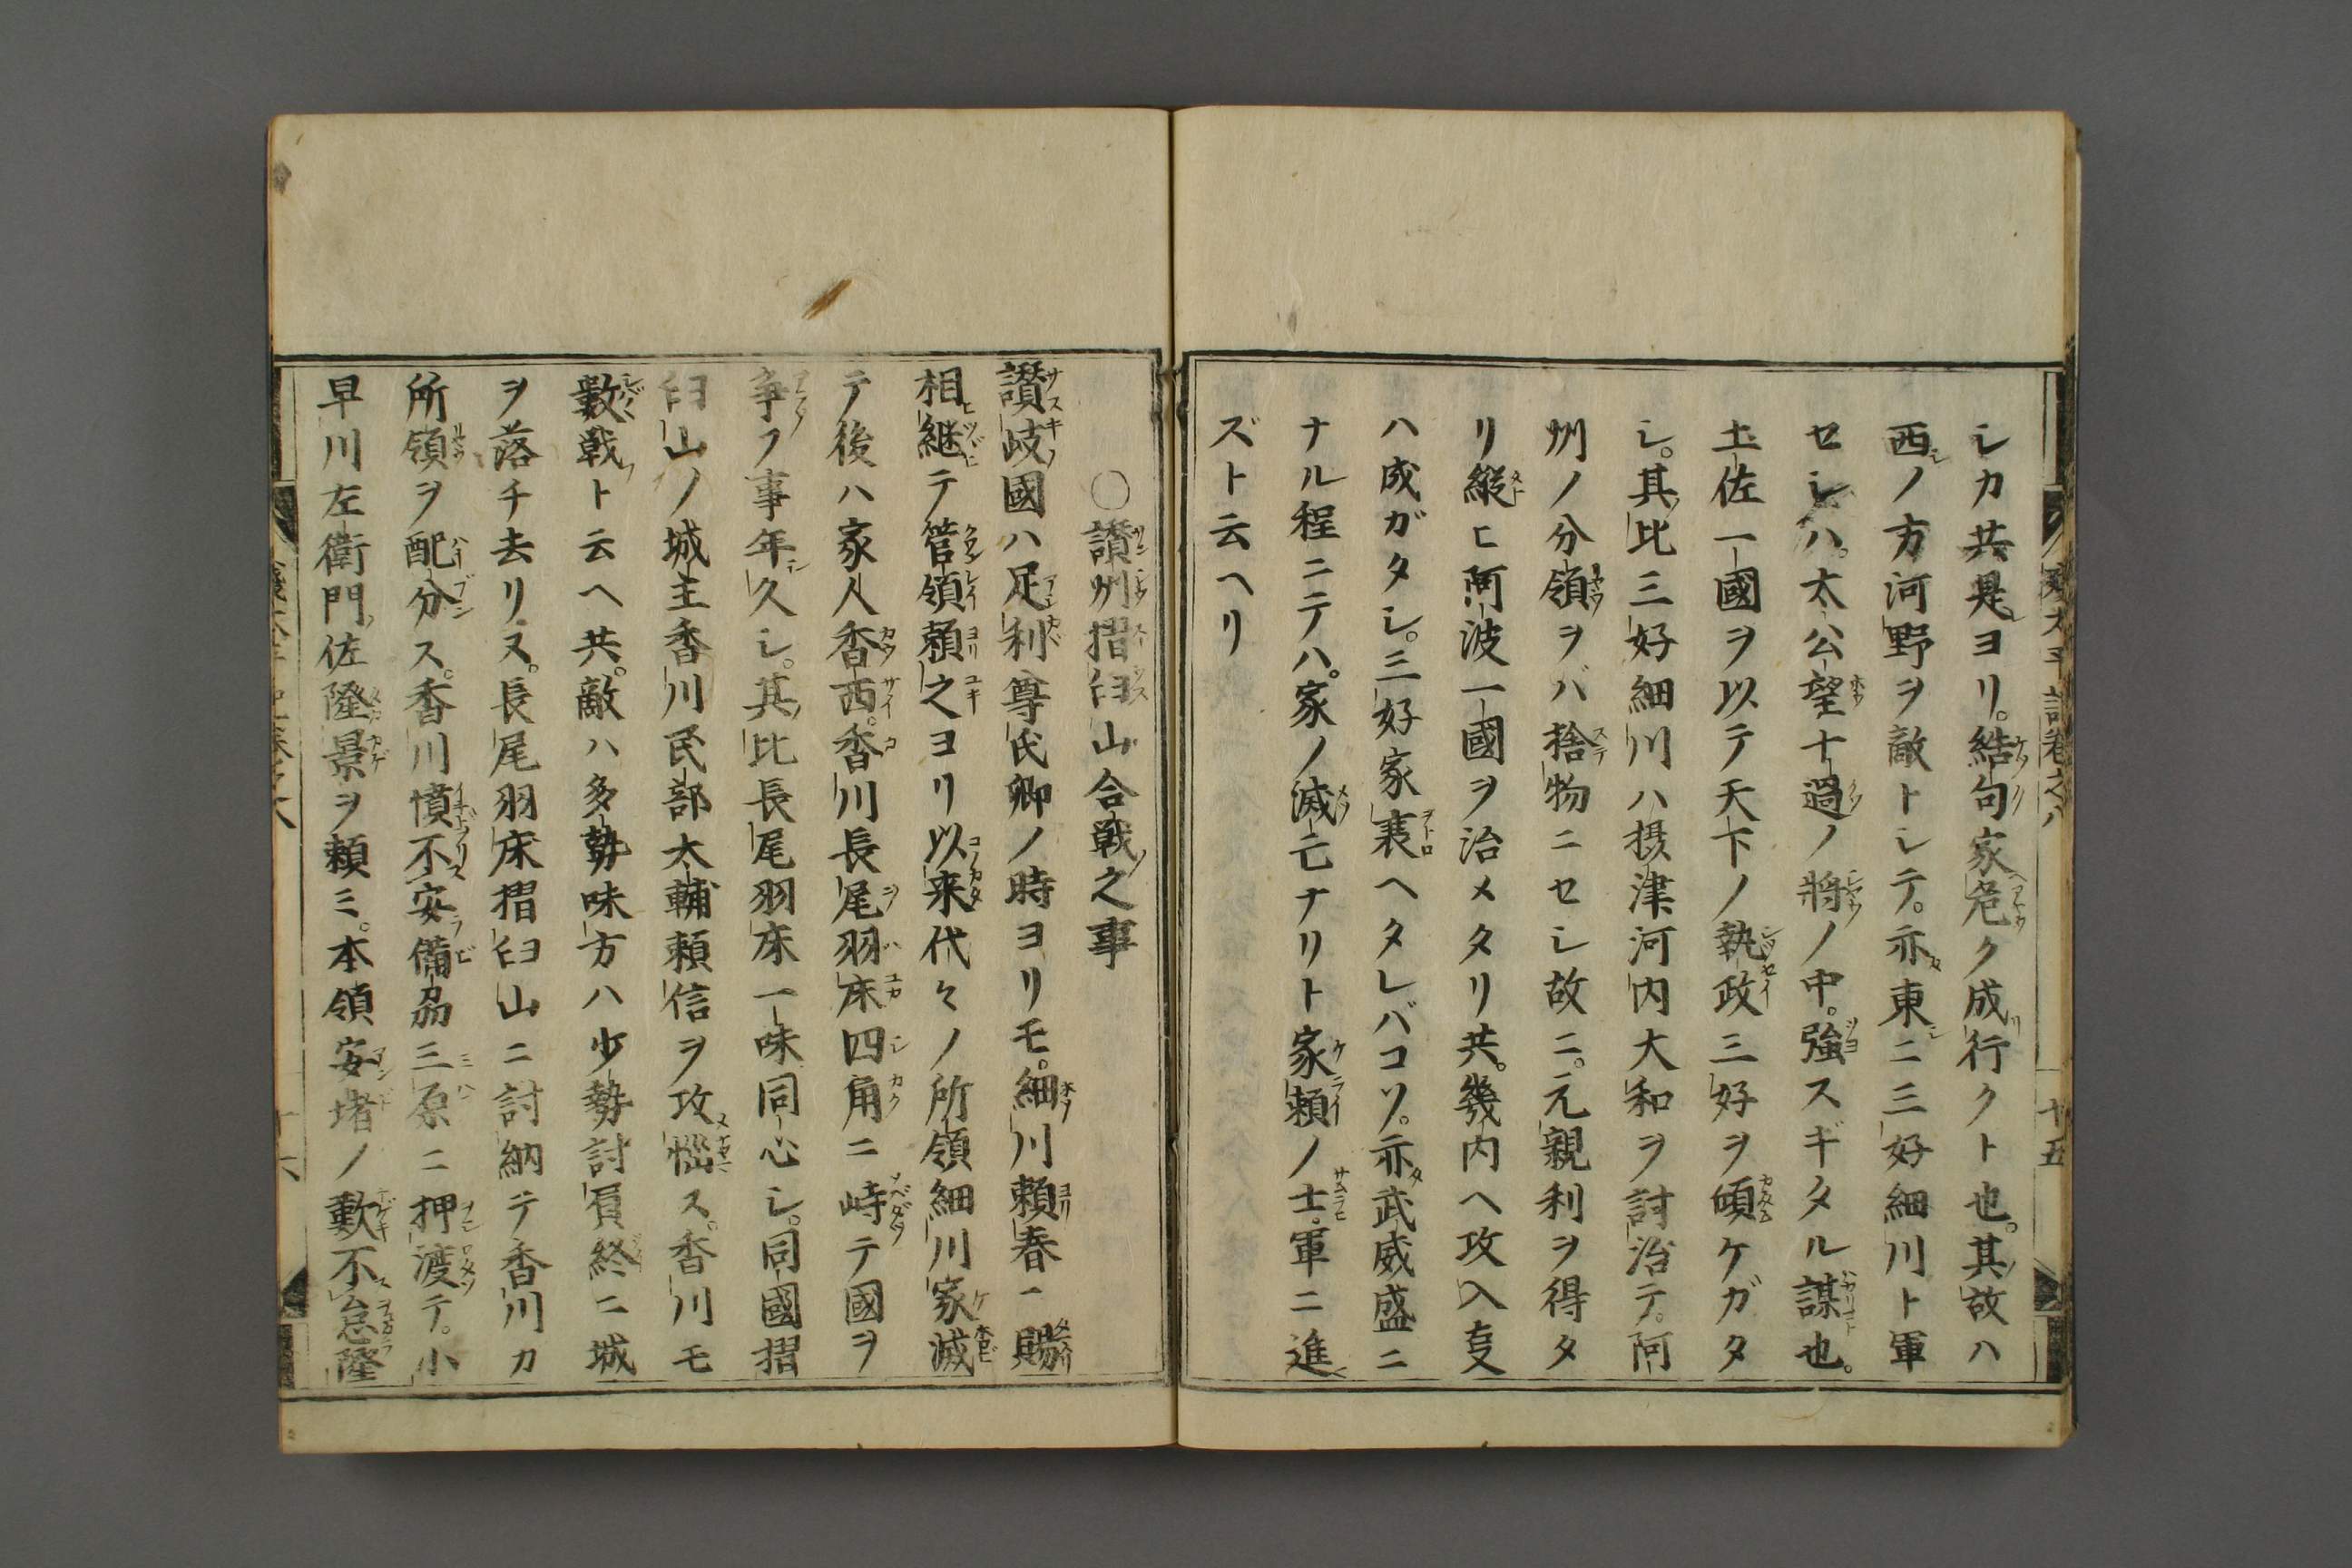 シカ共是ヨリ。結句家危ク成行クト也。其故ハ
西ノ方河野ヲ敵トシテ。亦東ニ三好細川ト軍
セシハ。太公望十過ノ将ノ中。強スギタル謀也。
土佐一國ヲ以テ天下ノ執政三好ヲ傾ケガタ
シ。其比三好細川ハ摂津河内大和ヲ討治テ。阿
州ノ分領ヲバ捨物ニセシ故ニ。元親利ヲ得タ
リ縦ヒ阿波一國ヲ治メタリ共。幾内ヘ攻入叓
ハ成ガタシ。三好家衰ヘタレバコソ。亦武威盛ニ
ナル程ニテハ。家ノ滅亡ナリト家頼ノ士。軍ニ進
ズト云ヘリ
○讃州摺臼山合戦之事
讃岐國ハ足利尊氏卿ノ時ヨリモ。細川頼春ニ賜
相継テ管領頼之ヨリ以来代々ノ所領細川家滅
テ後ハ家人香西。香川長尾羽床四角ニ峙テ國ヲ
争フ事年久シ。其比長尾羽床一味同心シ。同國摺
臼山ノ城主香川民部太輔頼信ヲ攻悩ス。香川モ
數戦ト云ヘ共。敵ハ多勢味方ハ少勢討負終ニ城
ヲ落チ去リヌ。長尾羽床摺臼山ニ討納テ香川カ
所領ヲ配分ス。香川憤不安備刕三原ニ押渡テ。小
早川左衛門佐隆景ヲ頼ミ。本領安堵ノ歎不怠隆